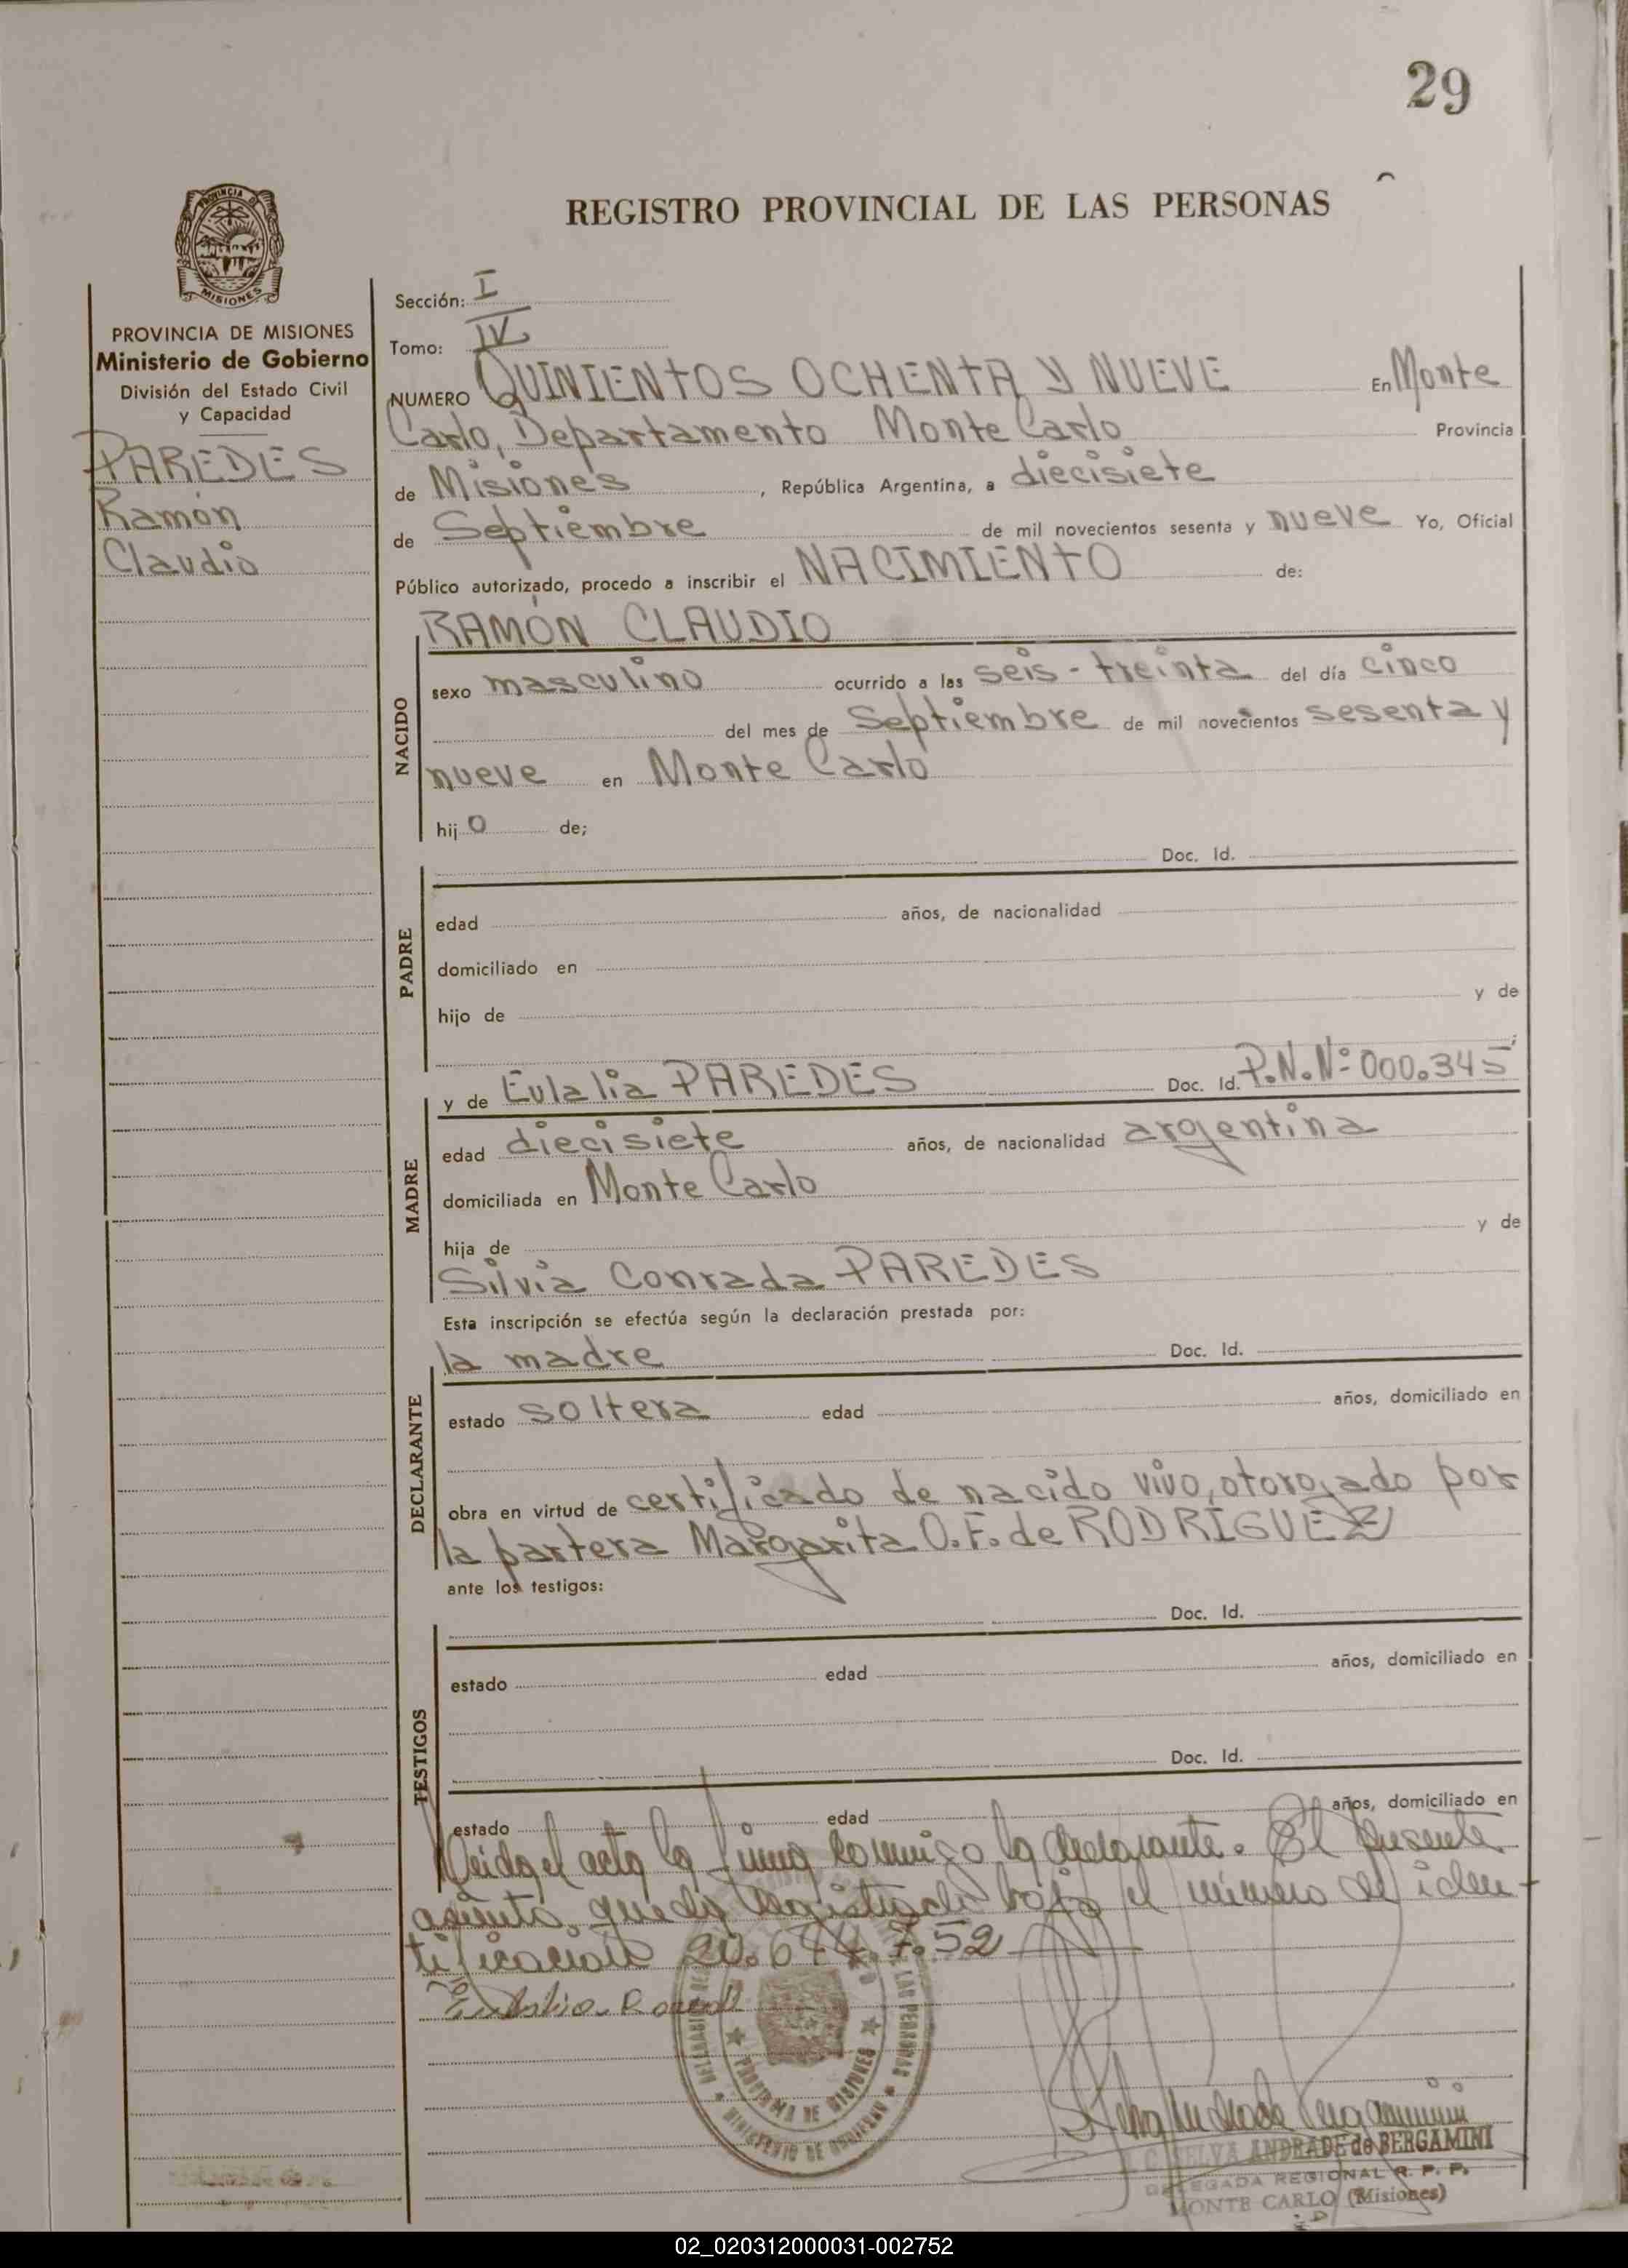 29
REGISTRO PROVINCIAL DE LAS PERSONAS
PROVINCIA DE MISIONES
MISIONES
PROVINCIA DE MISIONES
Ministerio de Gobierno
División del Estado Civil
y Capacidad
PAREDES
Ramón
Claudio
Sección: I
Tomo: IV
NUMERO QUINIENTOS OCHENTA Y NUEVE En Monte
Carlo, Departamento Monte Carlo Provincia
de Misiones, República Argentina, a diecisiete
de Septiembre de mil novecientos sesenta y nueve Yo, Oficial
Público autorizado, procedo a inscribir el NACIMIENTO de:
RAMÓN CLAUDIO
NACIDO
sexo masculino ocurrido a las seis - treinta del día cinco
del mes de Septiembre de mil novecientos sesenta y
nueve en Monte Carlo
hij o de;
Doc. Id.
PADRE
edad años, de nacionalidad
domiciliado en
hijo de y de
y de Eulalia PAREDES Doc. Id. P.N.Nº 000.345
MADRE
edad diecisiete años, de nacionalidad argentina
domiciliada en Monte Carlo
hija de y de
Silvia Conrada PAREDES
Esta inscripción se efectúa según la declaración prestada por:
la madre Doc. Id.
DECLARANTE
estado soltera edad años, domiciliado en
obra en virtud de certificado de nacido vivo, otorgado por
la partera Margarita O. F. de RODRÍGUEZ
ante los testigos:
Doc. Id.
TESTIGOS
estado edad años, domiciliado en
Doc. Id.
estado edad años, domiciliado en
Leida el acta la firma conmigo la declarante. El presente
asiento, queda registrado bajo el número de iden-
tificación
Eulalia Paredes
PROVINCIA DE MISIONES
MINISTERIO DE GOBIERNO
LAS PERSONAS
SELVA ANDRADE de BERGAMINI
DELEGADA REGIONAL R. P. P.
MONTE CARLO (Misiones)
02_020312000031-002752